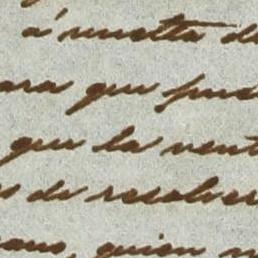 á vuelta de
para que pued
que la vent
s de resolver
ano, quien